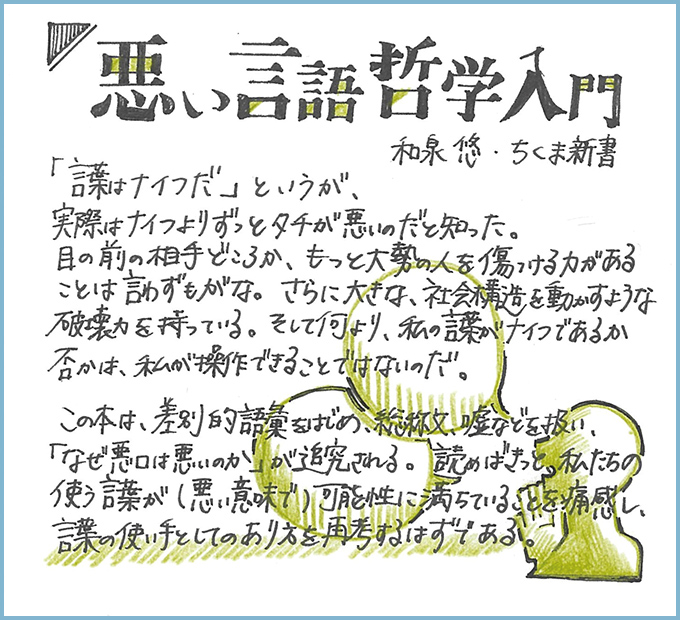 悪い言語哲学入門
和泉悠・ちくま新書
「言葉はナイフだ」というが、
実際はナイフよりずっとタチが悪いのだと知った。
目の前の相手どころか、もっと大勢の人を傷つける力がある
ことは言わずもがな。さらに大きな、社会構造を動かすような
破壊力を持っている。そして何より、私の言葉がナイフであるか
否かは、私が操作できることではないのだ。
この本は、差別的語彙をはじめ、総称文、嘘などを扱い、
「なぜ悪口は悪いのか」が追究される。読めばきっと、私たちの
使う言葉が(悪い意味で)可能性に満ちていることを痛感し、
言葉の使い手としてのあり方を再考するはずである。